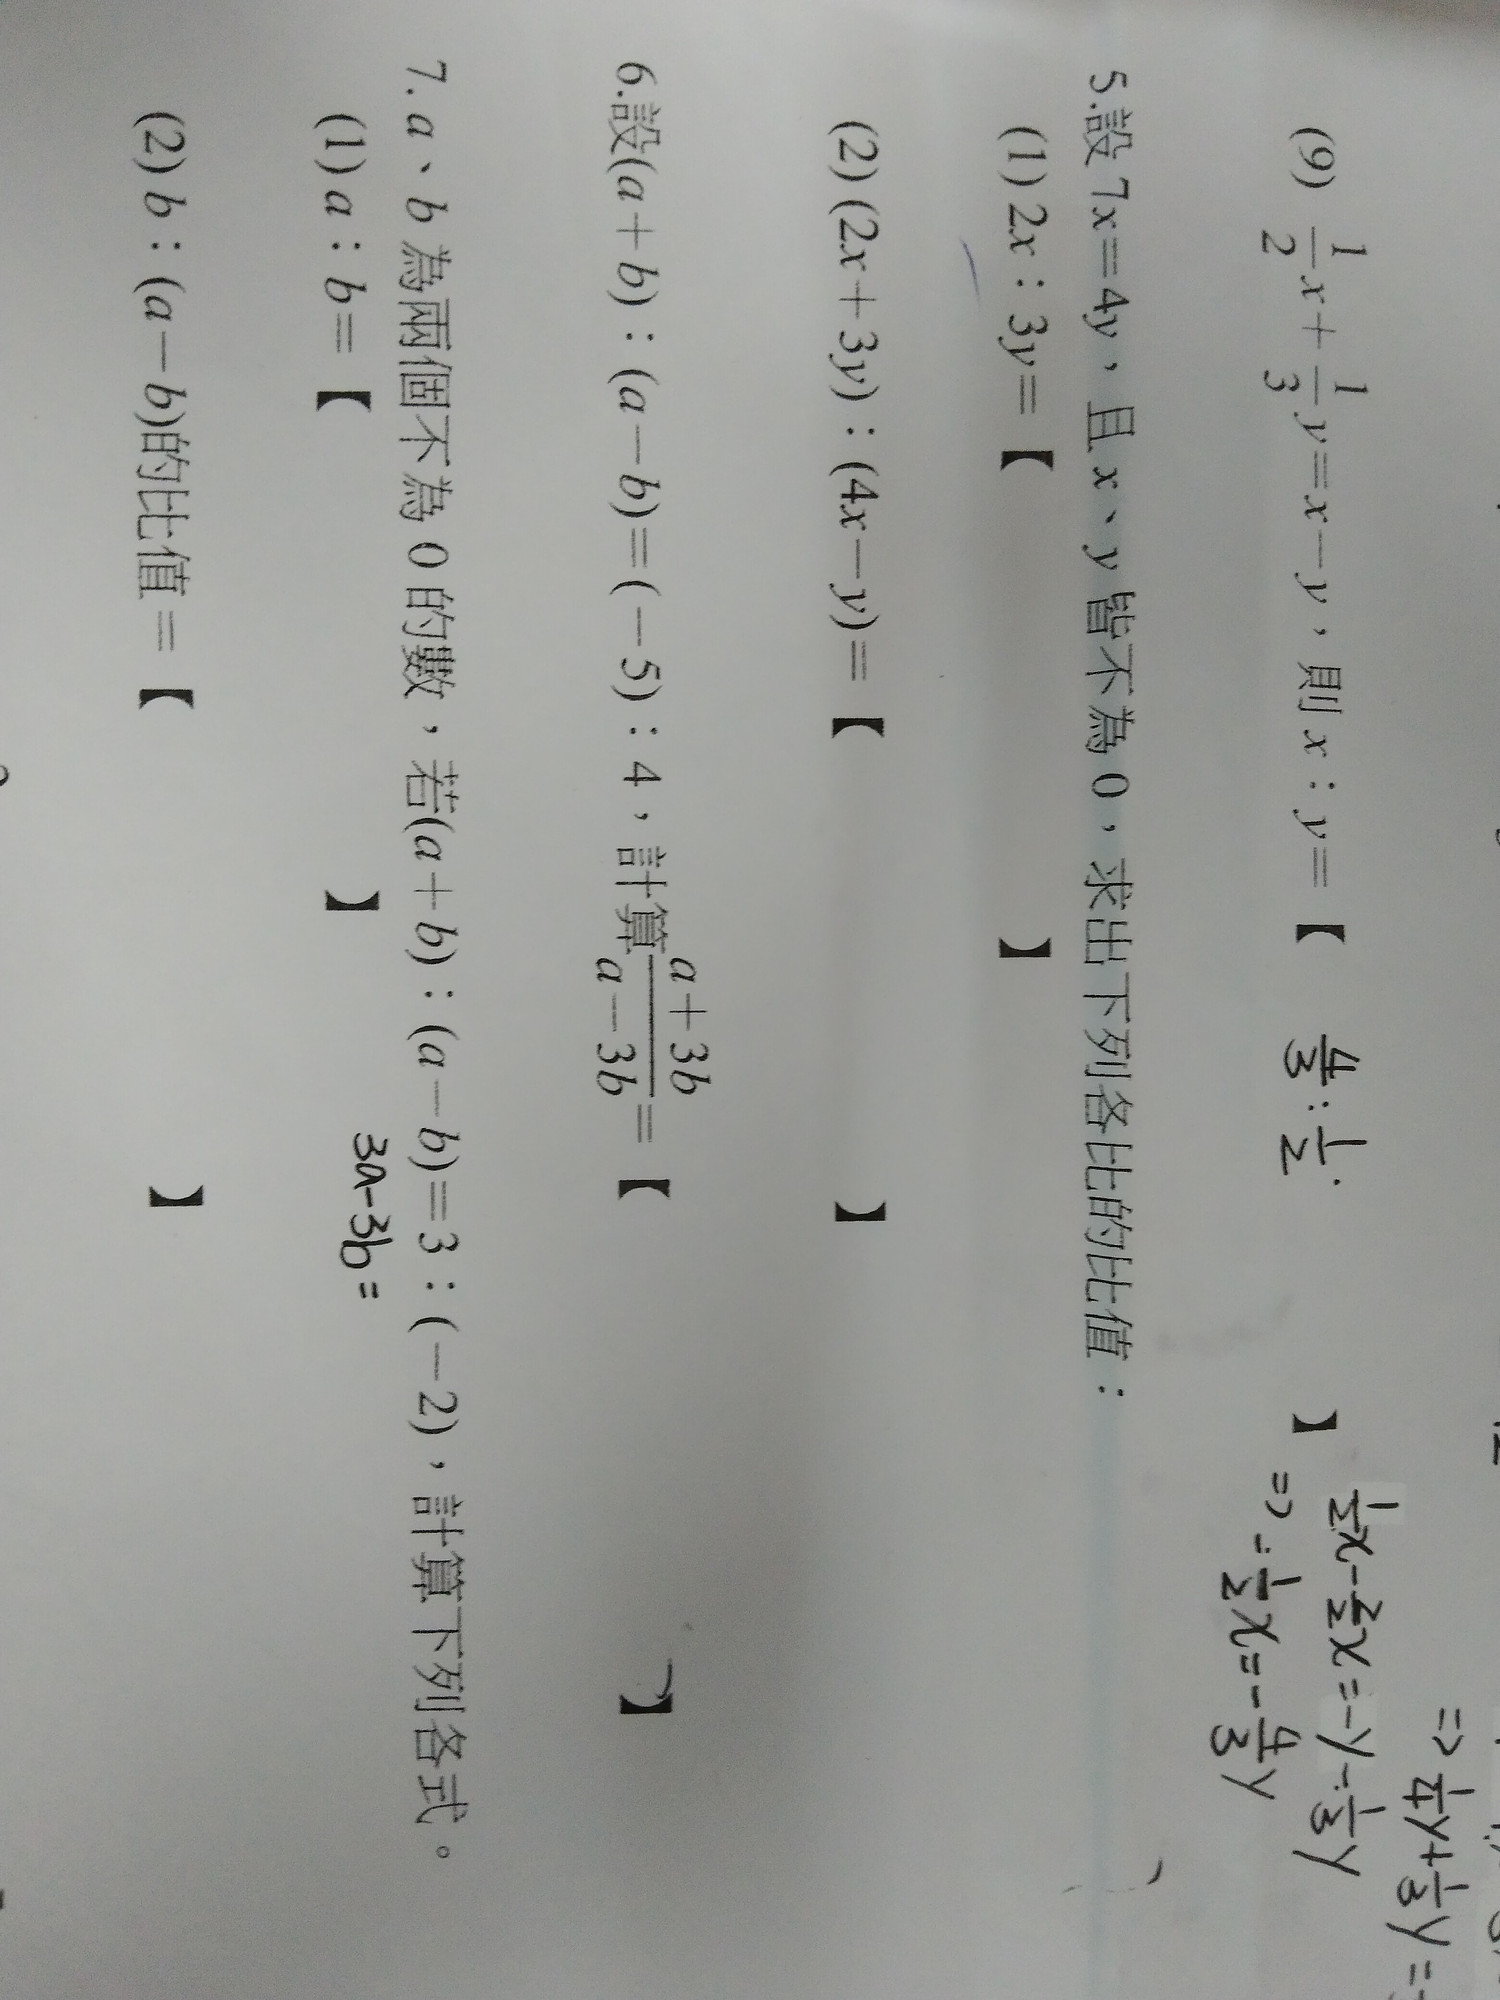 (9) 1/2x+1/3y=x-y，則 x：y=【 4/3 : 1/2 】
1/2x-2/2x=-y-1/3y
=> -1/2x=-4/3y
=> 1/4y+1/3y=
5.設 7x=4y，且 x、y 皆不為 0，求出下列各比的比值：
(1) 2x：3y=【 】
(2) (2x+3y)：(4x-y)=【 】
6.設(a+b)：(a-b)=(-5)：4，計算 (a+3b)/(a-3b) =【 】
7. a、b 為兩個不為 0 的數，若(a+b)：(a-b)=3：(-2)，計算下列各式。
3a-3b=
(1) a：b=【 】
(2) b：(a-b)的比值=【 】